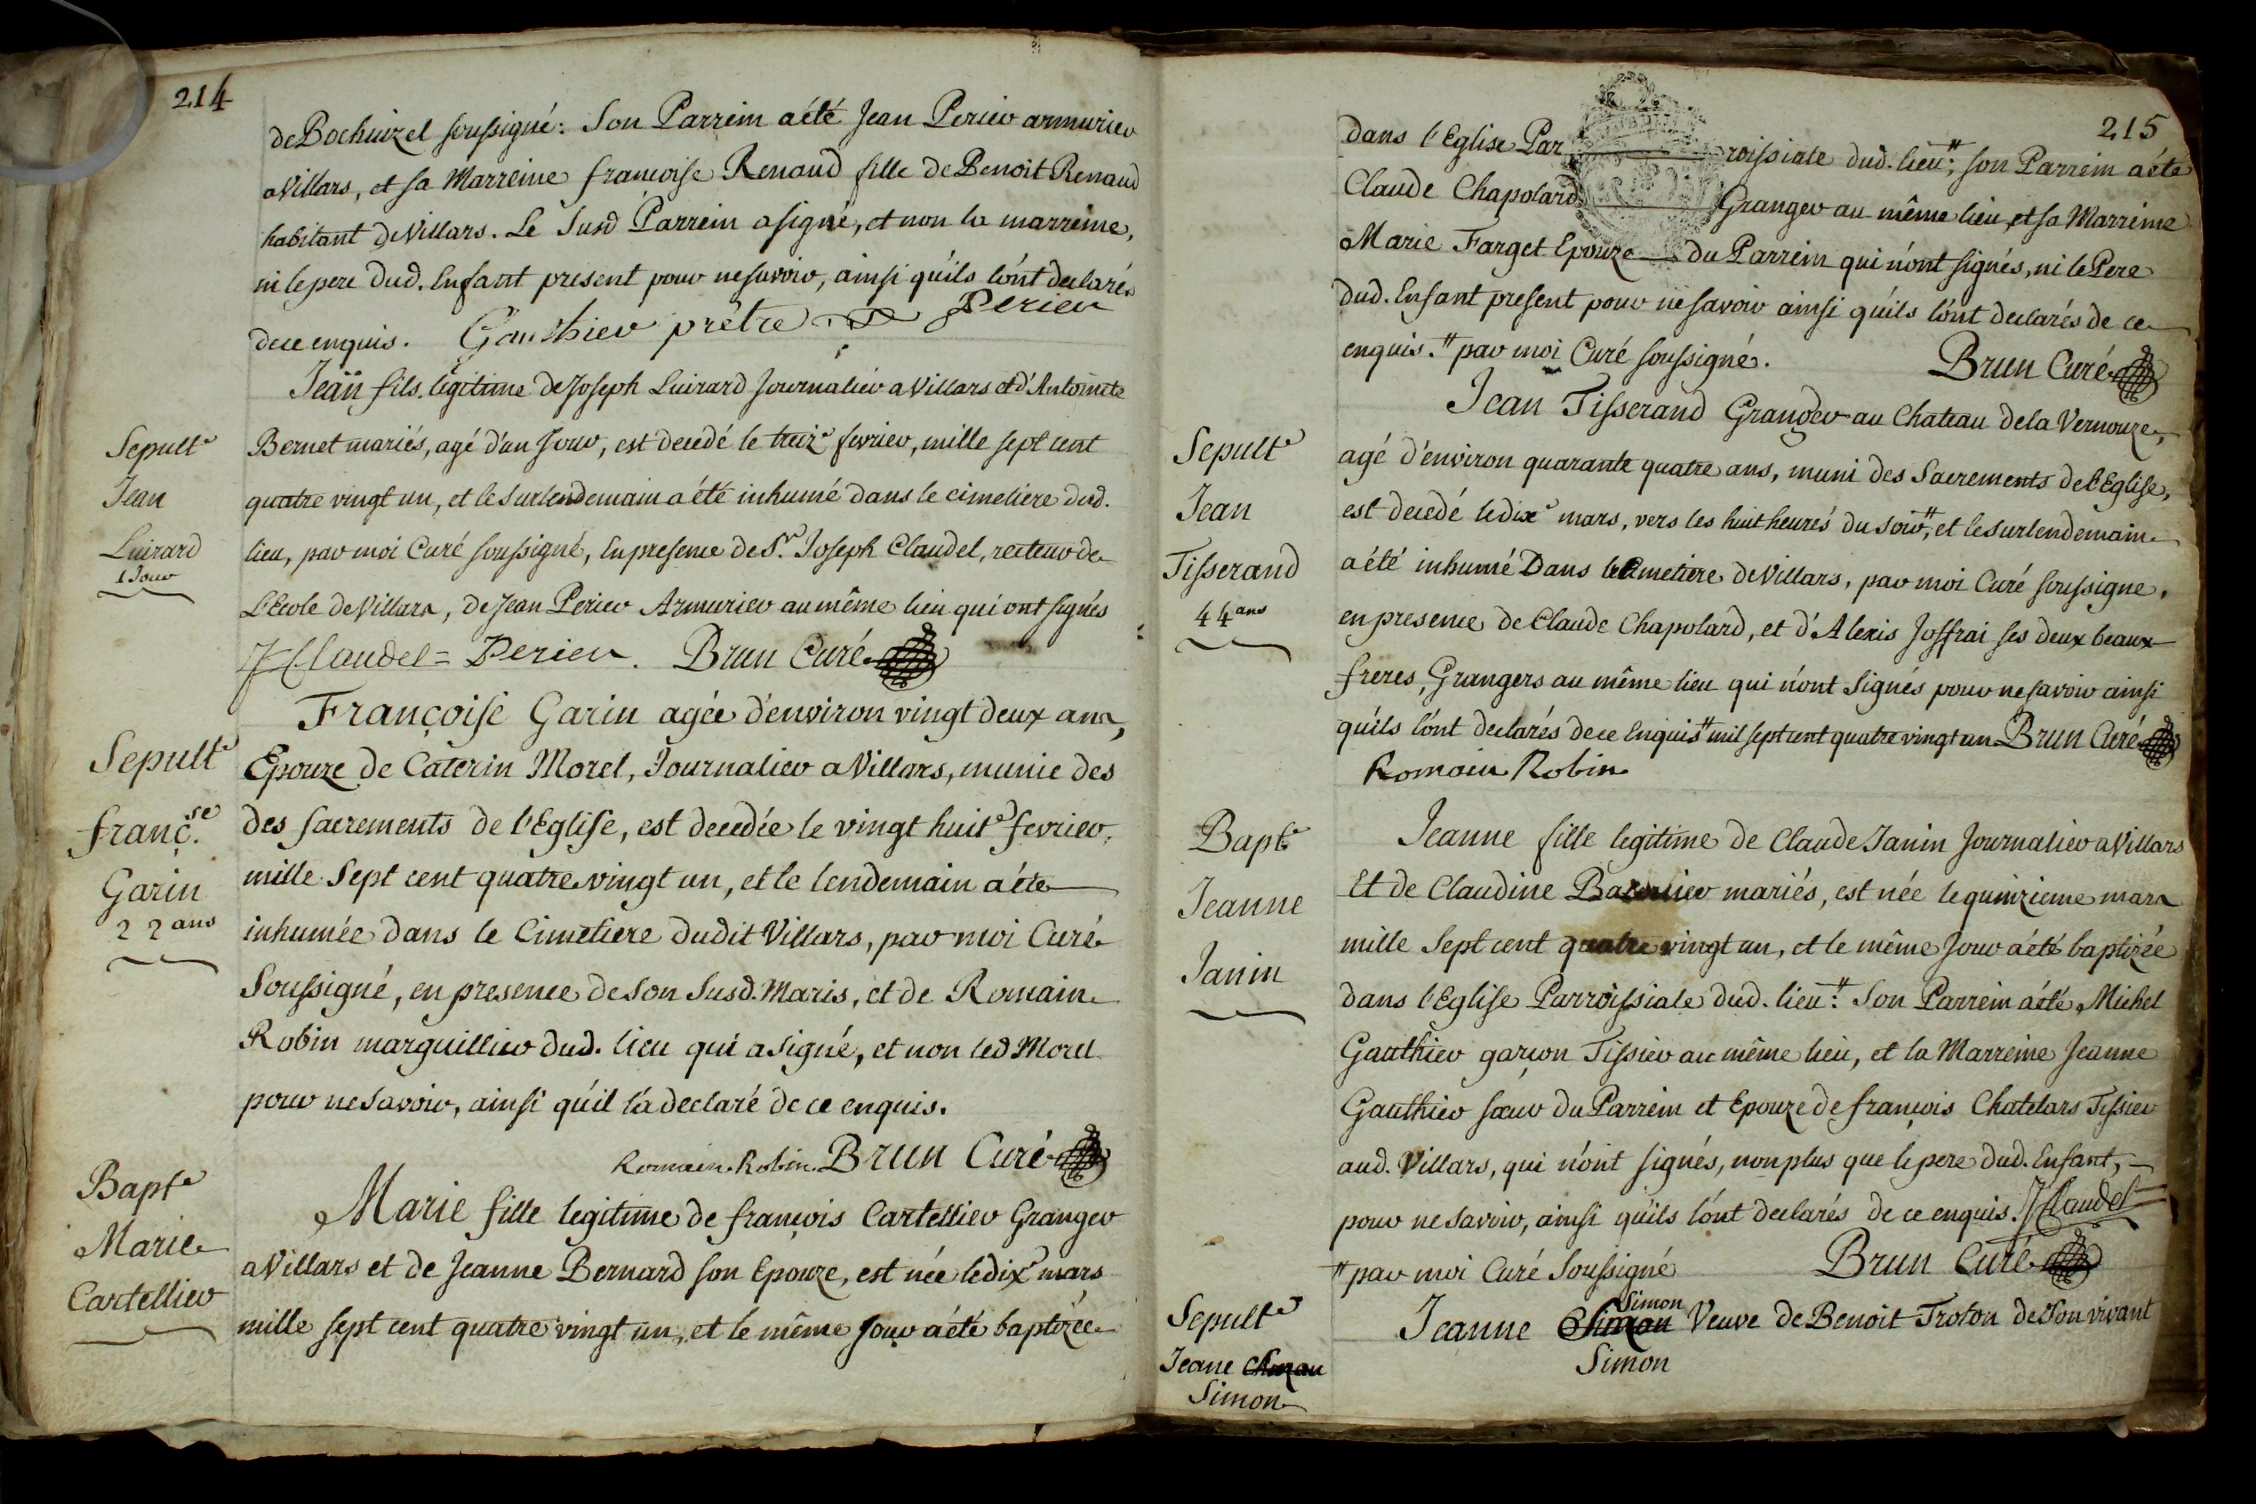 214
de Bochuizel soussigné: son Parrein a été Jean Perier armurier
a Villars, et sa Marreine françoise Renaud fille de Benoit Renaud
habitant de Villars. Le susd Parrein a signé, et non la marreine,
ni le pere dud. Enfant present pour ne savoir, ainsi qu'ils l'ónt declarés
de ce enquis. Gauthier prêtre Perier
Jean fils legitime de Joseph Luirard Journalier a Villars et d'Antoinete
Sepult.e
Jean
Luirard
1 Jour
Bernet mariés, agé d'un Jour, est decedé le treize fevrier, mille sept cent
quatre vingt un, et le surlendemain a été inhumé dans le cimetiere dud.
lieu, par moi Curé soussigné, En presence de Sr. Joseph Claudel, recteur de
L'Ecole de Villars, de Jean Perier Armurier au même lieu qui ont signés
J Claudel = Perier. Brun Curé
Sepult.e
franç.se
Garin
22 ans
Françoise Garin agée d'environ vingt deux ans,
Epouze de Caterin Morel, Journalier a Villars, munie des
des sacrements de l'Eglise, est decedée le vingt huit.e fevrier,
mille sept cent quatre vingt un, et le lendemain a éte
inhumée dans le Cimetiere dudit Villars, par moi Curé
Soussigné, en presence de son susd. Maris, et de Romain
Robin marguillier dud. lieu qui a signé, et non led Morel
pour ne savoir, ainsi qu'il l'a declaré de ce enquis.
Romain Robin Brun Curé
Bapt.e
Marie
Cartellier
Marie fille legitime de françois Cartellier Granger
a Villars et de Jeanne Bernard son Epouze, est née le dix.e mars
mille sept cent quatre vingt un, et le même Jour a été baptizée
215
dans l'Eglise Parroissiale dud. lieu:# son Parrein a été
Claude Chapolard Granger au même lieu, et sa Marreine
Marie Farget Epouze du Parrein qui n'ónt signés, ni le Pere
dud. Enfant present pour ne savoir ainsi qu'ils l'ónt declarés de ce
enquis. # par moi Curé soussigné. Brun Curé
Sepult.e
Jean
Tisserand
44 ans
Jean Tisserand Granger au Chateau de la Vernouze,
agé d'environ quarante quatre ans, muni des Sacrements de l'Eglise,
est decedé le dix.e mars, vers les huit heures du soir,# et le surlendemain
a été inhumé Dans le Cimetiere de Villars, par moi Curé soussigné,
en presence de Claude Chapolard, et d'Alexis Joffrai ses deux beaux
freres, Grangers au même lieu qui n'ónt signés pour ne savoir ainsi
qu'ils l'ónt declarés de ce Enquis # mil sept cent quatre vingt un Brun Curé
Romain Robin
Bapt.e
Jeanne
Janin
Jeanne fille legitime de Claude Janin Journalier a Villars
Et de Claudine mariés, est née le quinzieme mars
mille sept cent quatre vingt un, et le même Jour a été baptizée
dans l'Eglise Parroissiale dud. lieu:# Son Parrein a été Michel
Gauthier garçon Tissier au même lieu, et la Marreine Jeanne
Gauthier sœur du Parrein et Epouze de françois Chatelars Tissier
aud. Villars, qui n'ónt signés, non plus que le pere dud. Enfant,
pour ne savoir, ainsi qu'ils l'ónt declarés de ce enquis. J Claudel
# par moi Curé Soussigné Brun Curé
Sepult.e
Jeane Chuzau
Simon
Simon
Jeanne Chuzau Veuve de Benoit Troton de son vivant
Simon